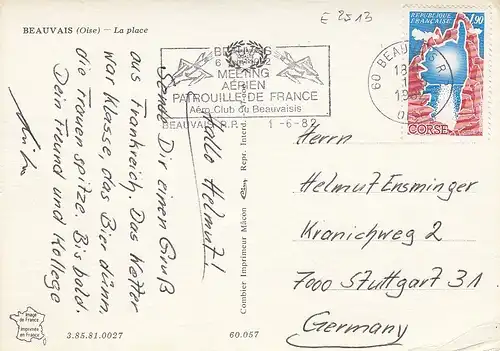 BEAUVAIS (Oise) — La place
E 2513
RÉPUBLIQUE FRANÇAISE
1,90
CORSE
BEAUVAIS
MEETING
AÉRIEN
PATROUILLE DE FRANCE
Aéro Club du Beauvaisis
BEAUVAIS R.P. 1-6-82
60 BEAUV R
Hallo Helmut!
Sende Dir einen Gruß
aus Frankreich. Das Wetter
war Klasse, das Bier dünn,
die Frauen spitze. Bis bald.
Dein Freund und Kollege
Combier Imprimeur Mâcon Repr. Interd.
Herrn
Helmut Ensminger
Kranichweg 2
7000 Stuttgart 31
Germany
image
de France
Imprimée
en France
3.85.81.0027
60.057